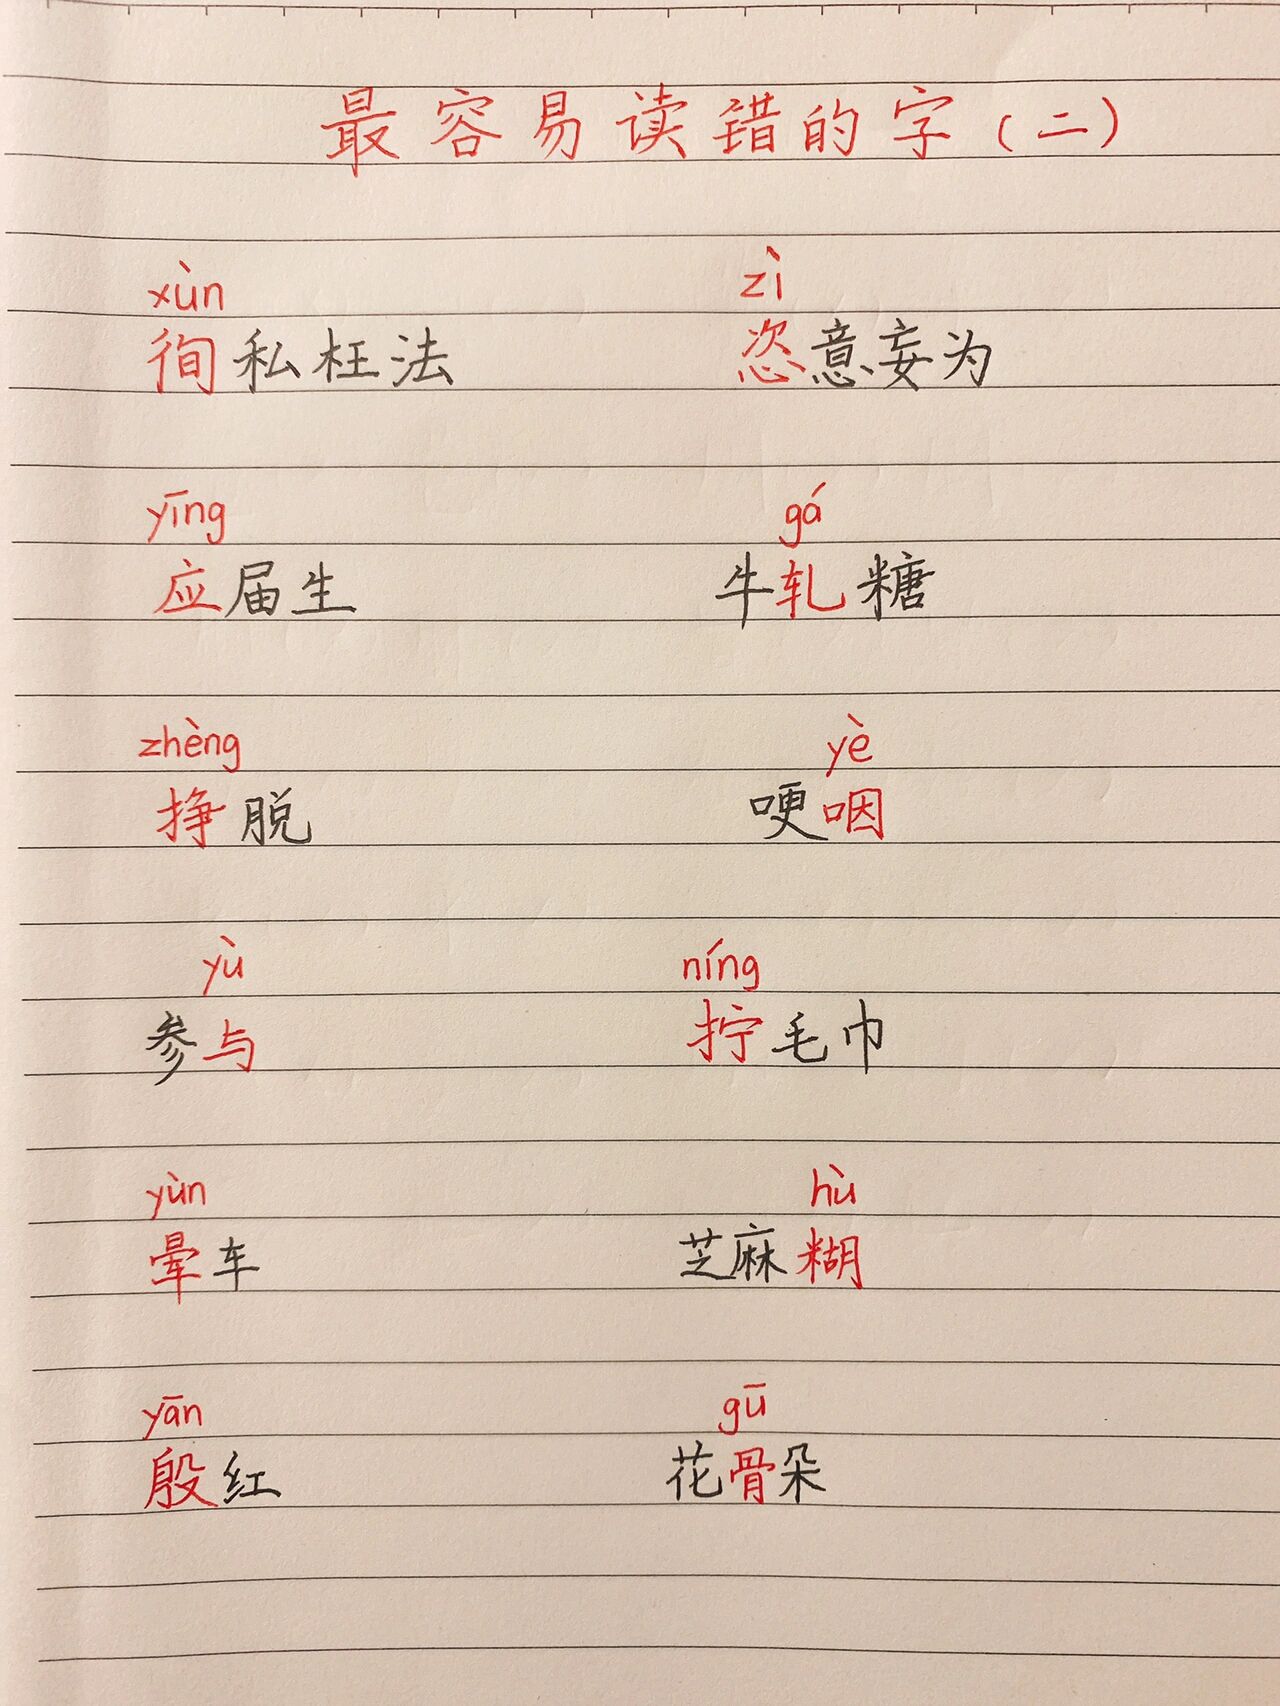 最容易读错的字(二)
xùn zì
徇私枉法 恣意妄为
yīng gá
应届生 牛轧糖
zhèng yè
挣脱 哽咽
yù níng
参与 拧毛巾
yùn hù
晕车 芝麻糊
yān gū
殷红 花骨朵